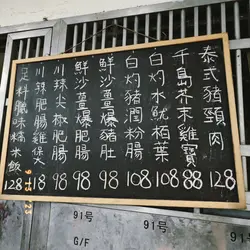 泰式豬頸肉 128
千島芥末雞寶 88
白灼水魷柏葉 108
白灼豬潤粉腸 108
鮮沙薑爆豬肚 98
鮮沙薑爆肥腸 98
川辣尖椒肥腸 98
川辣肥腸雞煲 18
足料臘味糯米飯 128
91号
G/F
91号